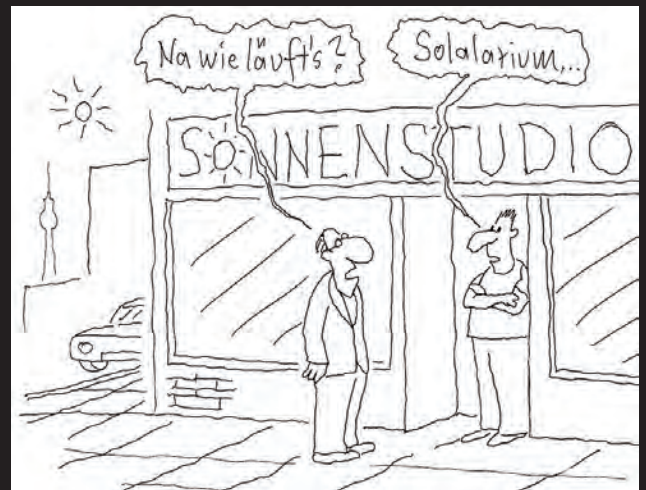 Na wie läuft's?
Solalarium,..
SONNENSTUDIO